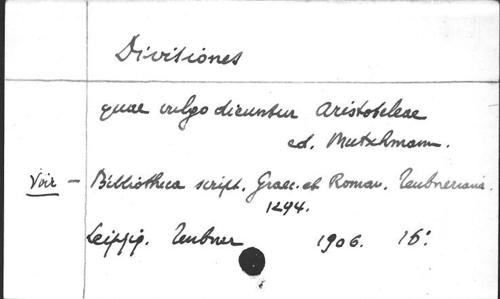 Divisiones
quae vulgo dicuntur Aristoteleae
ed. Mutschmann.
Voir — Bibliotheca script. Graec. et Roman. Teubneriana.
1294.
Leipzig. Teubner 1906. 16°